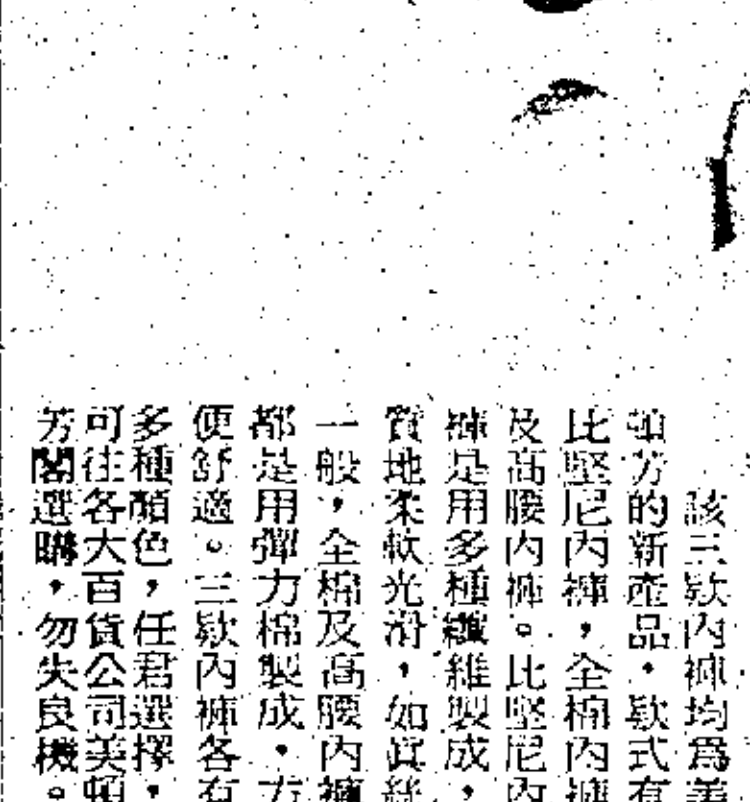 該三欵內褲均爲美
頓芳的新產品，欵式有
比堅尼內褲，全棉內褲
及高腰內褲。比堅尼內
褲是用多種纖維製成，
質地柔軟光滑，如眞絲
一般，全棉及高腰內褲
都是用彈力棉製成，方
便舒適。三欵內褲各有
多種顏色，任君選擇，
可往各大百貨公司美頓
芳閣選購，勿失良機。